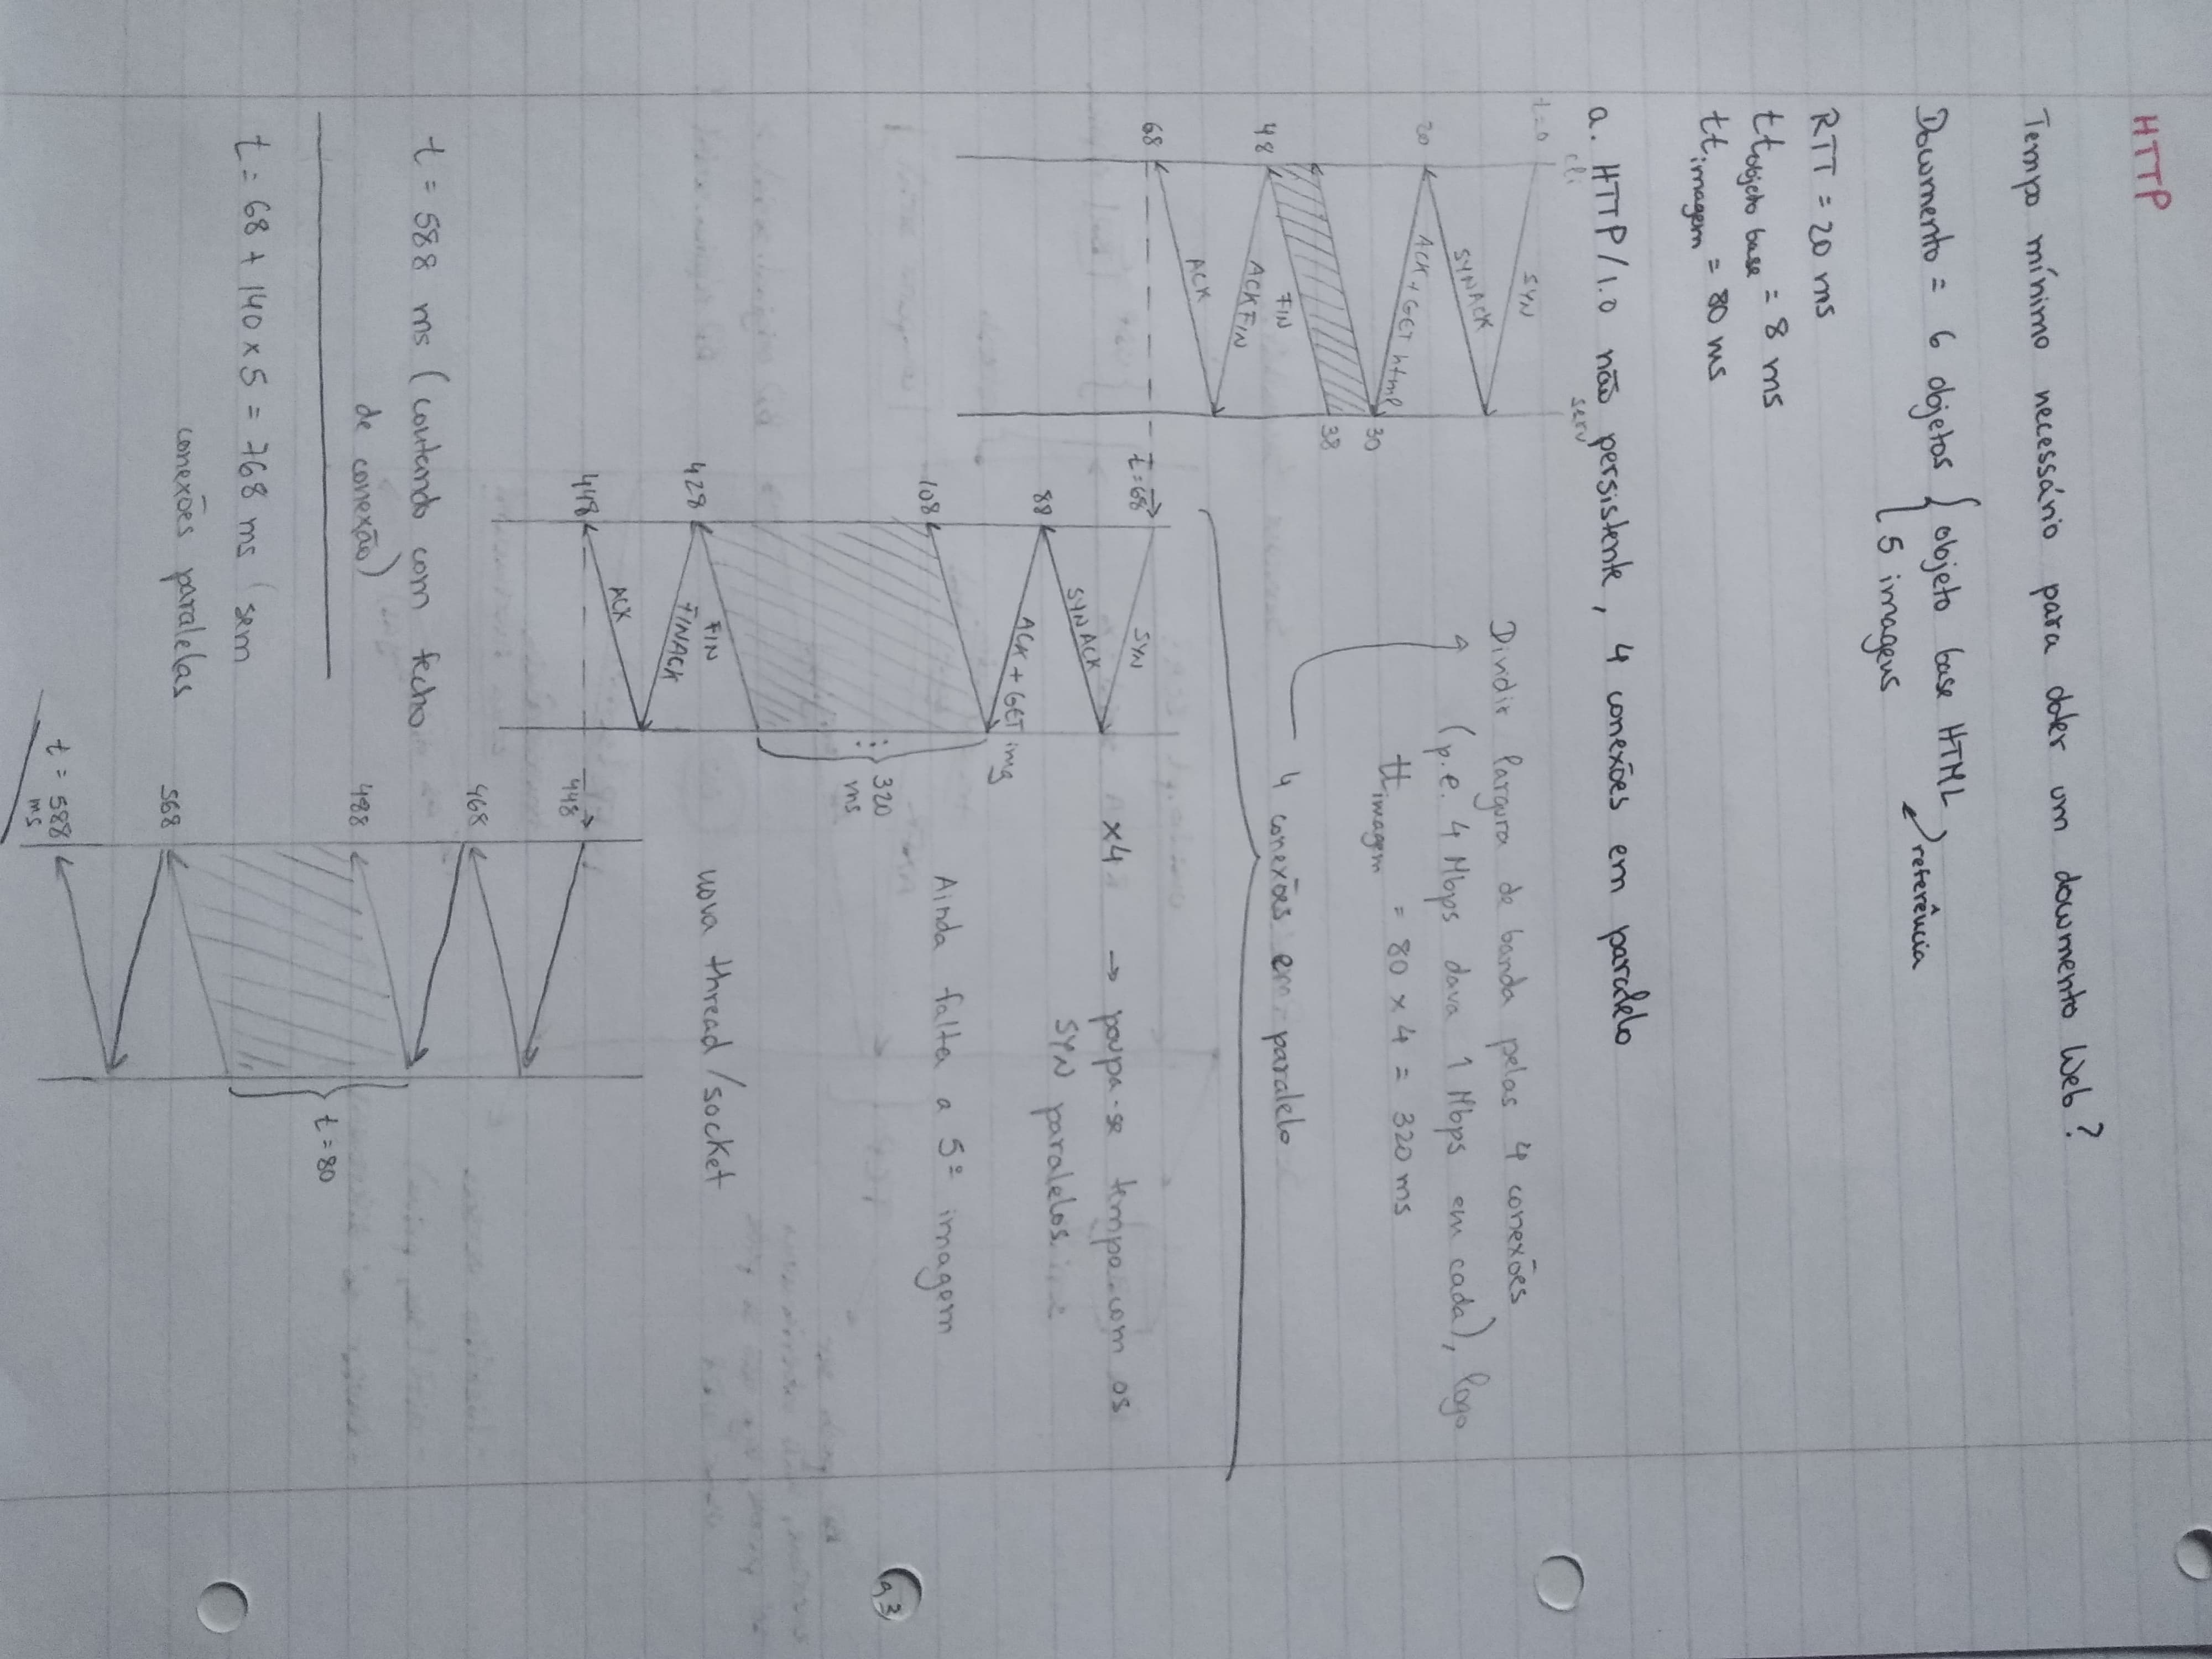 HTTP
Tempo mínimo necessário para obter um documento Web?
Documento = 6 objetos { objeto base HTML
5 imagens
referência
RTT = 20 ms
tt objeto base = 8 ms
tt imagem = 80 ms
a. HTTP/1.0 não persistente, 4 conexões em paralelo
cli serv
t=0
SYN
SYNACK
20
ACK + GET html
30
38
FIN
48
ACKFIN
ACK
68
Dividir largura de banda pelas 4 conexões
(p.e. 4 Mbps dava 1 Mbps em cada), logo
tt imagem = 80 x 4 = 320 ms
4 conexões em paralelo
t=68
SYN
SYNACK
88
ACK + GET img
108
320
ms
FIN
428
FINACK
ACK
448
x4 → poupa-se tempo com os
SYN paralelos
Ainda falta a 5ª imagem
nova thread/socket
448
468
488
t = 80
568
t = 588
ms
t = 588 ms (contando com fecho
de conexão)
t = 68 + 140 x 5 = 768 ms (sem
conexões paralelas